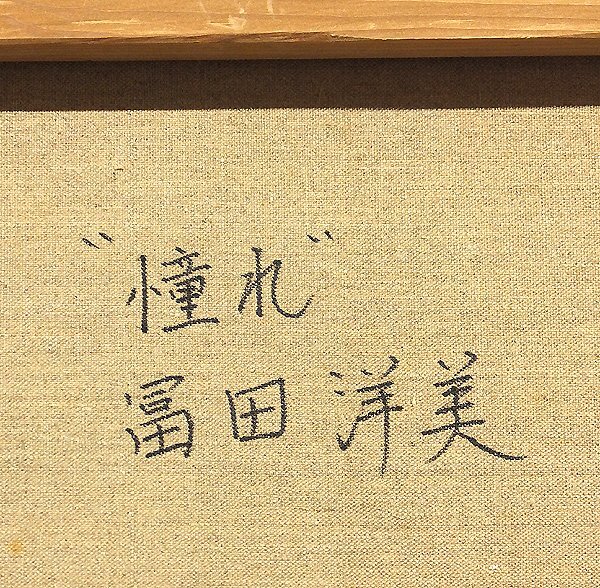 "憧れ"
冨田洋美